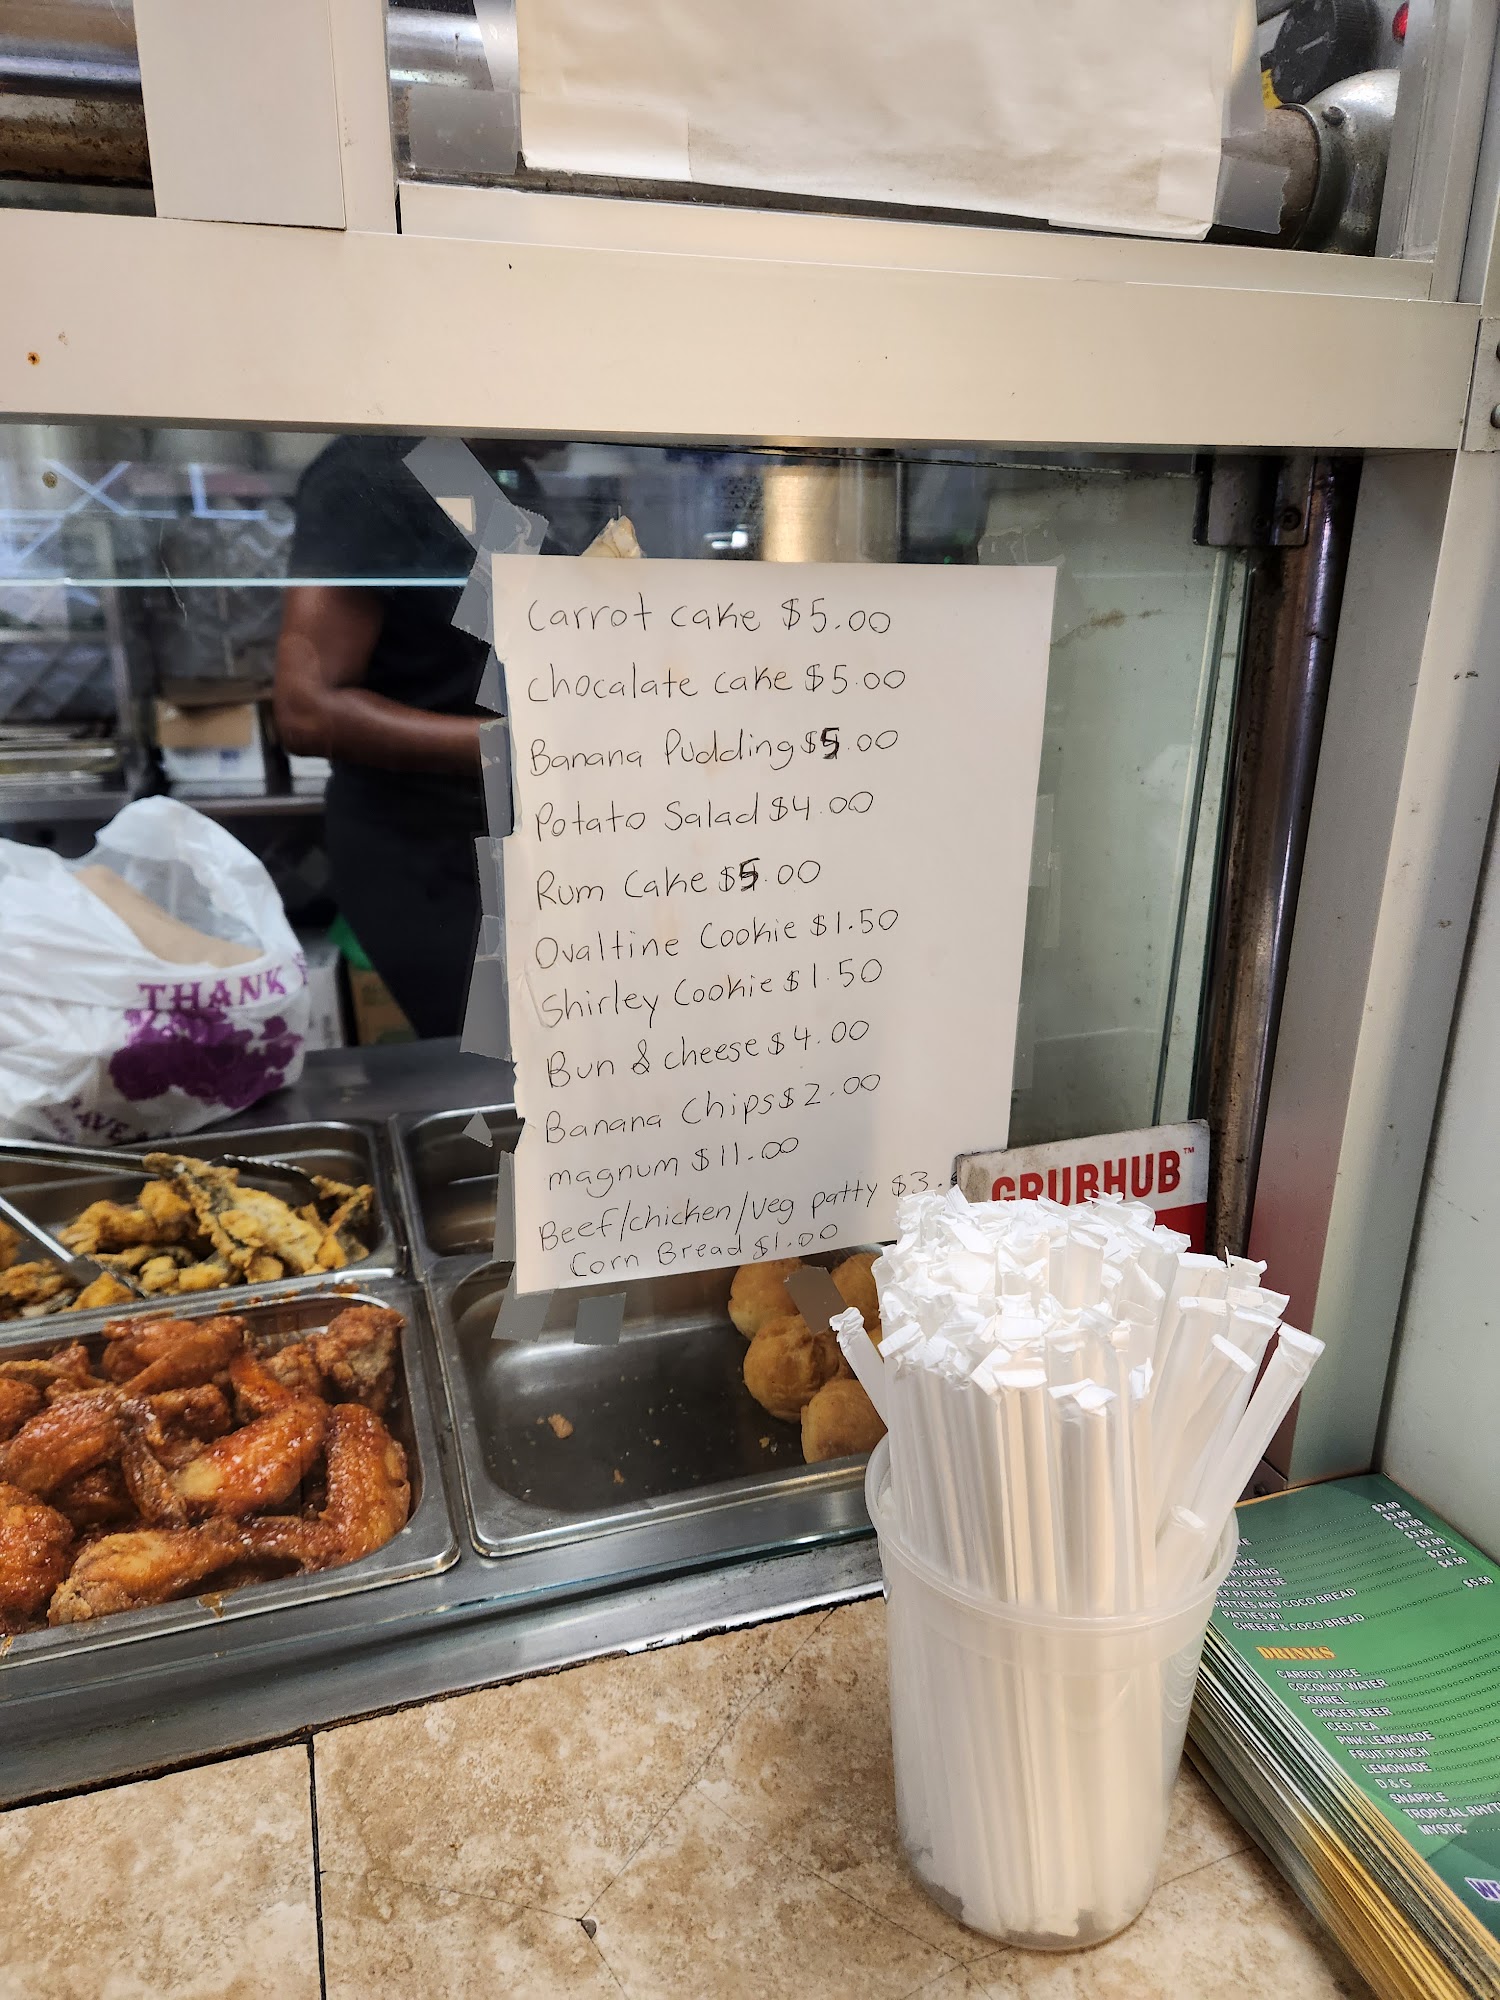 Carrot cake $5.00
Chocalate cake $5.00
Banana Pudding $5.00
Potato Salad $4.00
Rum Cake $5.00
Ovaltine Cookie $1.50
Shirley Cookie $1.50
Bun & cheese $4.00
Banana Chips $2.00
magnum $11.00
Beef/chicken/veg patty $3.
Corn Bread $1.00
THANK
GRUBHUB™
$3.00
$3.00
$3.00
$3.50
PUDDING $3.00
$2.75
PATTIES AND COCO BREAD $4.50
PATTIES W/
CHEESE & COCO BREAD $5.50
DRINKS
CARROT JUICE
COCONUT WATER
SORREL
GINGER BEER
ICED TEA
PINK LEMONADE
FRUIT PUNCH
LEMONADE
D & G
SNAPPLE
TROPICAL
MYSTIC